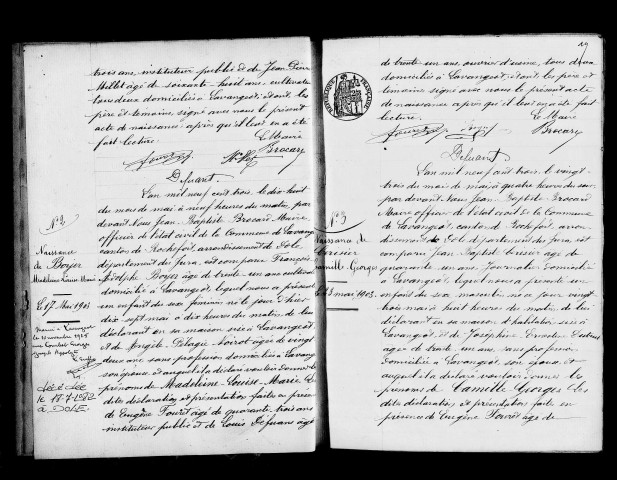 trois ans, instituteur public et de Jean Denis
Millot âgé de soixante huit ans cultivateur
tous deux domiciliés à Lavangeot; et ont, les
père et témoins, signé avec nous le présent
acte de naissance après qu'il leur en a été
fait lecture.
Le Maire
Brocard
Defuart
N° 2
Naissance
de Boyer
Madeleine Louise Marie
Le 17 Mai 1903
L'an mil neuf cent trois, le dix-huit
du mois de mai à neuf heures du matin, par
devant Nous Jean-Baptiste Brocard Maire
officier de l'état civil de la Commune de Lavangeot
canton de Rochefort, arrondissement de Dole,
département du Jura, est comparu François
Adolphe Boyer âgé de trente un ans cultivateur
domicilié à Lavangeot, lequel nous a présenté
un enfant du sexe féminin né le jour d'hier
dix sept mai à dix heures du matin de lui
déclarant en sa maison sise à Lavangeot
et de Angèle Pélagie Noirot âgée de vingt
deux ans sans profession domiciliée à Lavangeot
son épouse, et auquel il a déclaré vouloir donner les
prénoms de Madeleine Louise-Marie. Les
dites déclaration et présentation faites en présence
de Eugène Fouret âgé de quarante trois ans
instituteur public et de Louis Defuans âgé
décédée
le 17-7-1982
à DOLE
19
de trente un ans, ouvrier d'usine, tous deux
domiciliés à Lavangeot; et ont, les père et
témoins signé avec nous le présent acte
de naissance après qu'il leur en a été fait
lecture.
Le Maire
Brocard
Defuart
N° 3
Naissance de
Camille Georges
Le 23 mai 1903
L'an mil neuf cent trois le vingt-
trois du mois de mai à quatre heures du soir,
par devant nous Jean Baptiste Brocard
Maire officier de l'état civil de la Commune
de Lavangeot, canton de Rochefort, arron-
dissement de Dole département du Jura, est
comparu Jean Baptiste âgé de
quarante un ans, Journalier domicilié
à Lavangeot, lequel nous a présenté un
enfant du sexe masculin né ce jour vingt
trois mai à huit heures du matin de lui
déclarant en sa maison d'habitation sise à
Lavangeot, et de Joséphine
âgée de trente un ans, sans profession
domiciliée à Lavangeot son épouse et
auquel il a déclaré vouloir donner les
prénoms de Camille Georges. Les
dites déclaration et présentation faites en
présence de Eugène Fouret âgé de